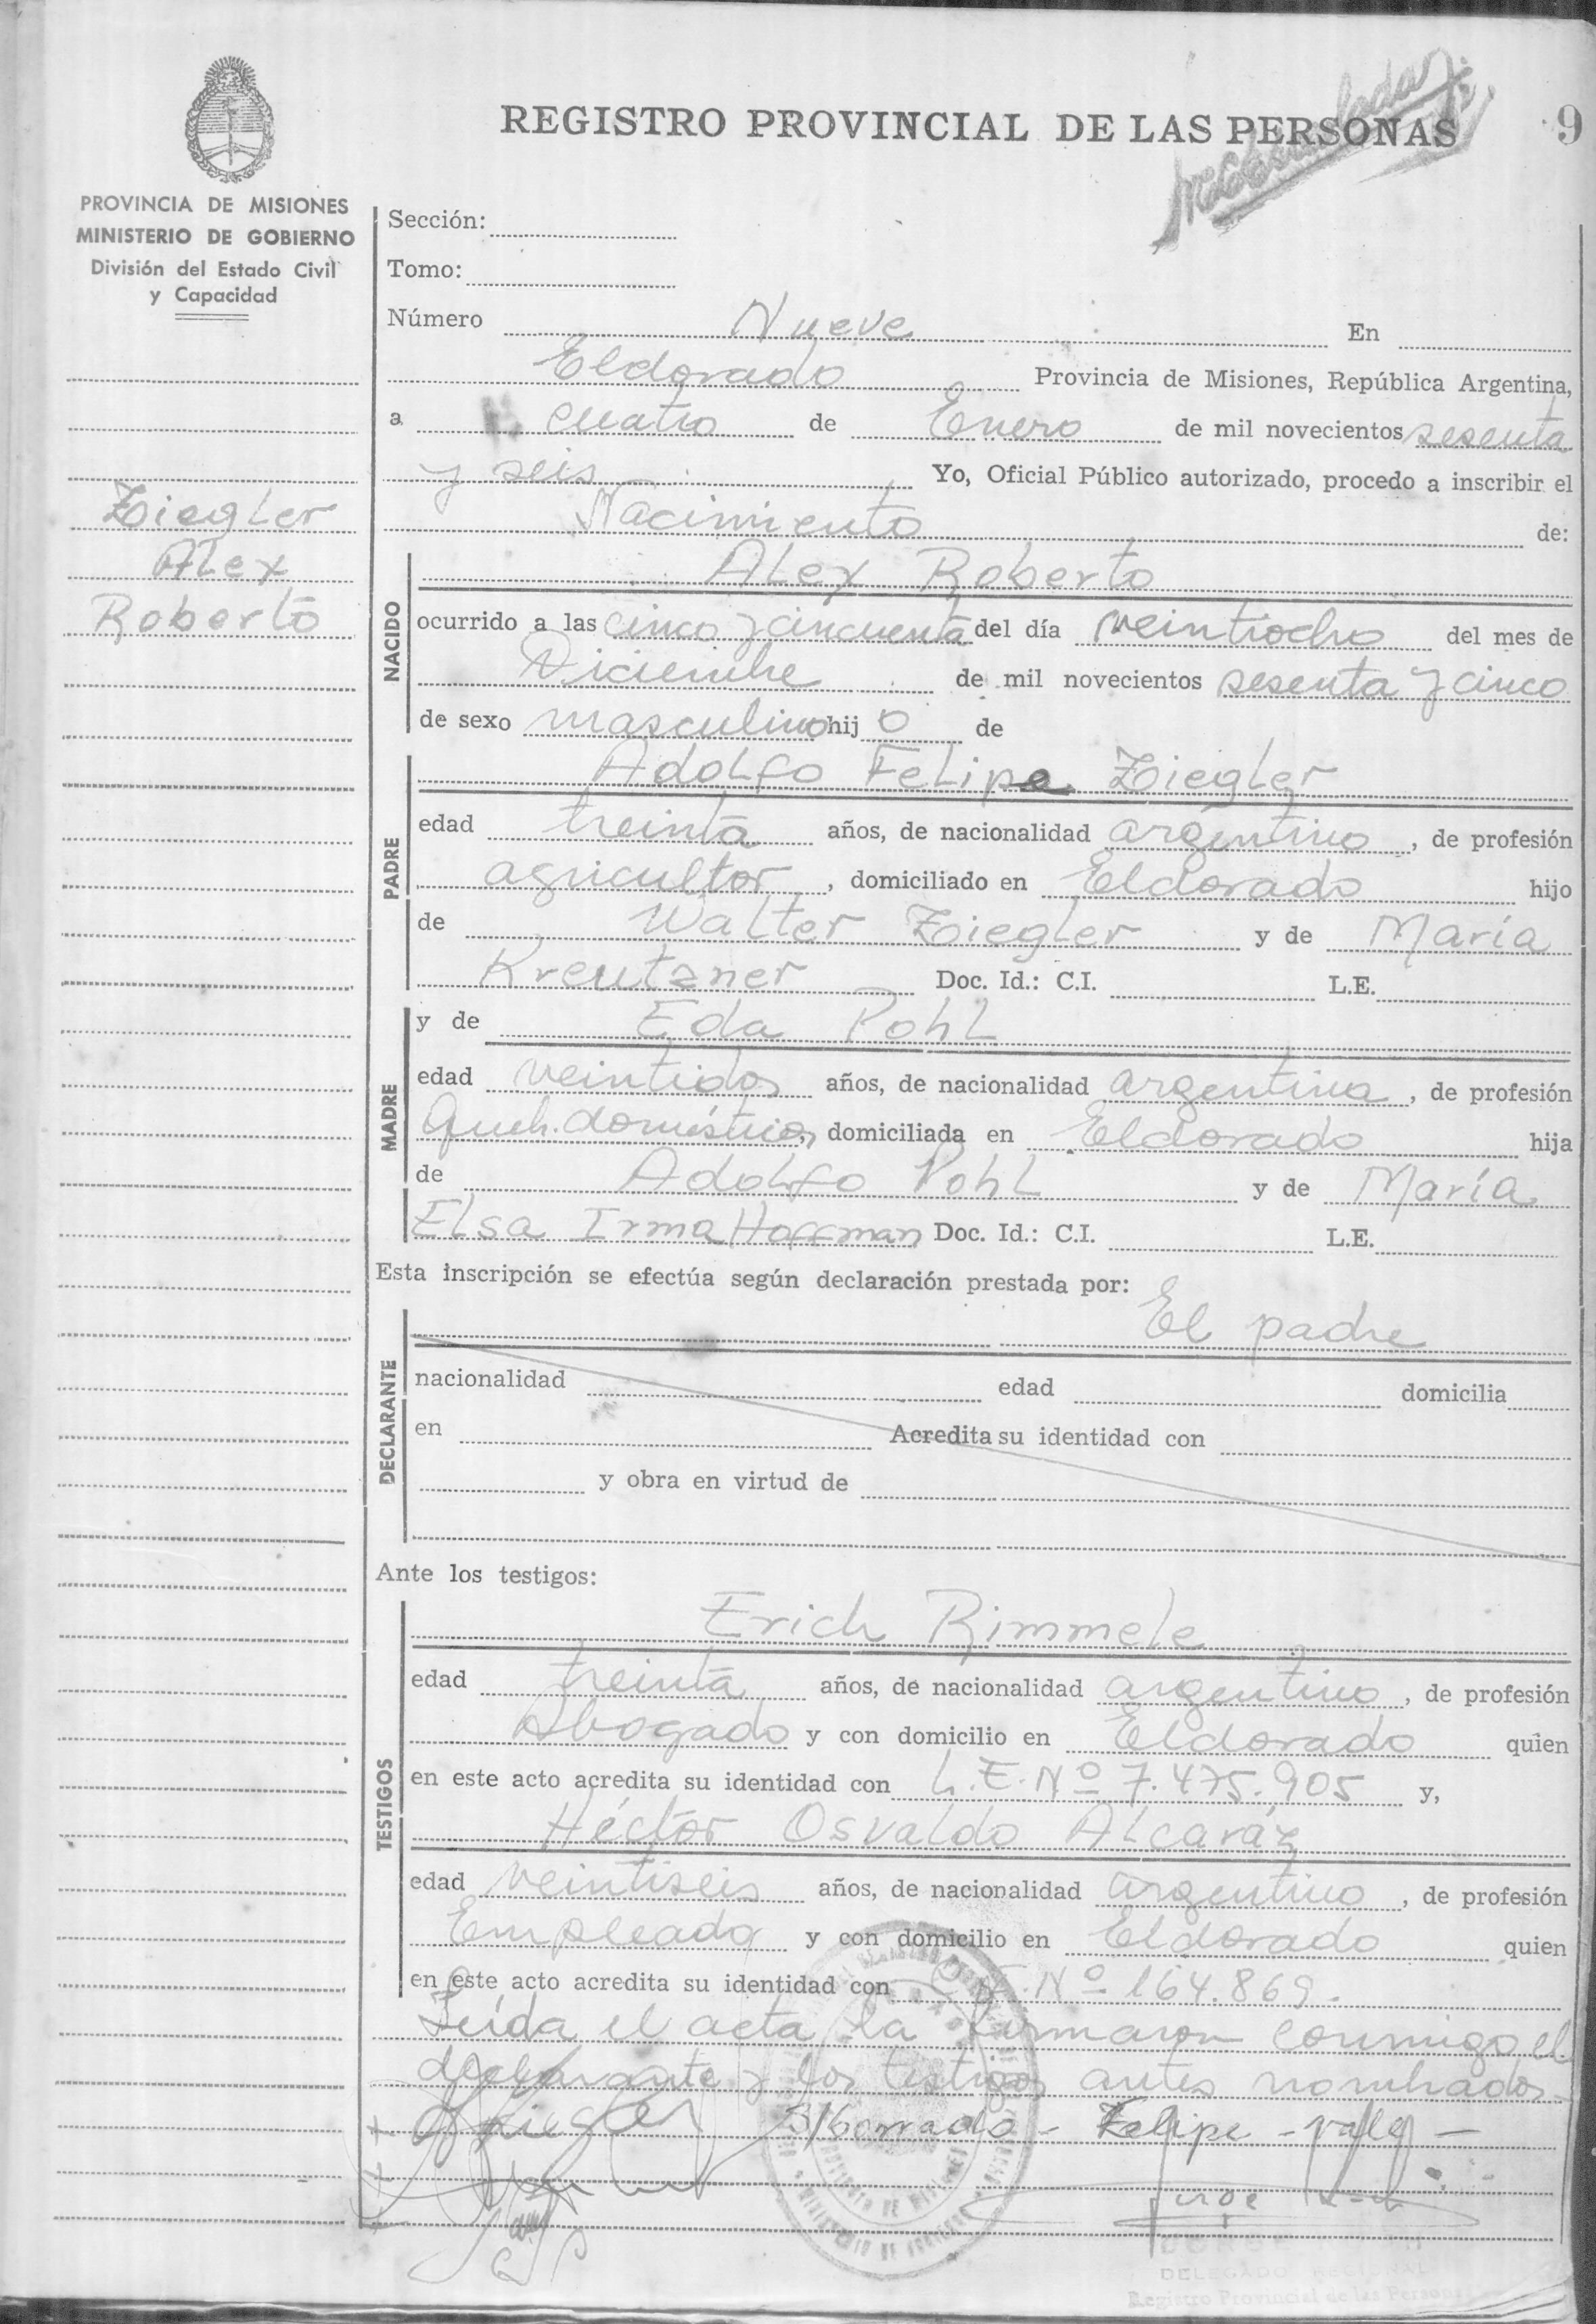 REGISTRO PROVINCIAL DE LAS PERSONAS
9
PROVINCIA DE MISIONES
MINISTERIO DE GOBIERNO
División del Estado Civil
y Capacidad
Ziegler
Alex
Roberto
Sección:
Tomo:
Número Nueve En
Eldorado Provincia de Misiones, República Argentina,
a cuatro de Enero de mil novecientos sesenta
y seis Yo, Oficial Público autorizado, procedo a inscribir el
Nacimiento de:
NACIDO
Alex Roberto
ocurrido a las cinco y cincuenta del día veintiocho del mes de
Diciembre de mil novecientos sesenta y cinco
de sexo masculino hij o de
PADRE
Adolfo Felipe Ziegler
edad treinta años, de nacionalidad argentino, de profesión
agricultor, domiciliado en Eldorado hijo
de Walter Ziegler y de María
Kreutzner Doc. Id.: C.I. L.E.
MADRE
y de Eda Pohl
edad veintidos años, de nacionalidad argentina, de profesión
Queh. domésticos, domiciliada en Eldorado hija
de Adolfo Pohl y de María
Elsa Irma Hoffman Doc. Id.: C.I. L.E.
Esta inscripción se efectúa según declaración prestada por:
DECLARANTE
El padre
nacionalidad edad domicilia
en Acredita su identidad con
y obra en virtud de
Ante los testigos:
TESTIGOS
Erich Rimmele
edad treinta años, de nacionalidad argentino, de profesión
Abogado y con domicilio en Eldorado quien
en este acto acredita su identidad con L.E. Nº 7.475.905 y,
Héctor Osvaldo Alcaráz
edad veintiseis años, de nacionalidad argentino, de profesión
Empleado y con domicilio en Eldorado quien
en este acto acredita su identidad con Nº 164.869.
Leída el acta la firmaron conmigo el
declarante y los testigos antes nombrados-
S/borrado - Felipe - vale -
DELEGADO REGIONAL
Registro Provincial de las Personas